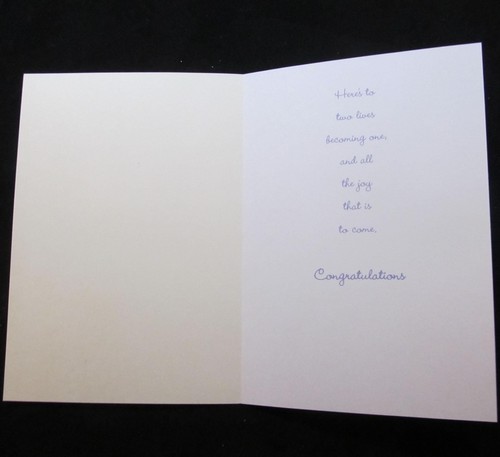 Here's to
two lives
becoming one,
and all
the joy
that is
to come.
Congratulations